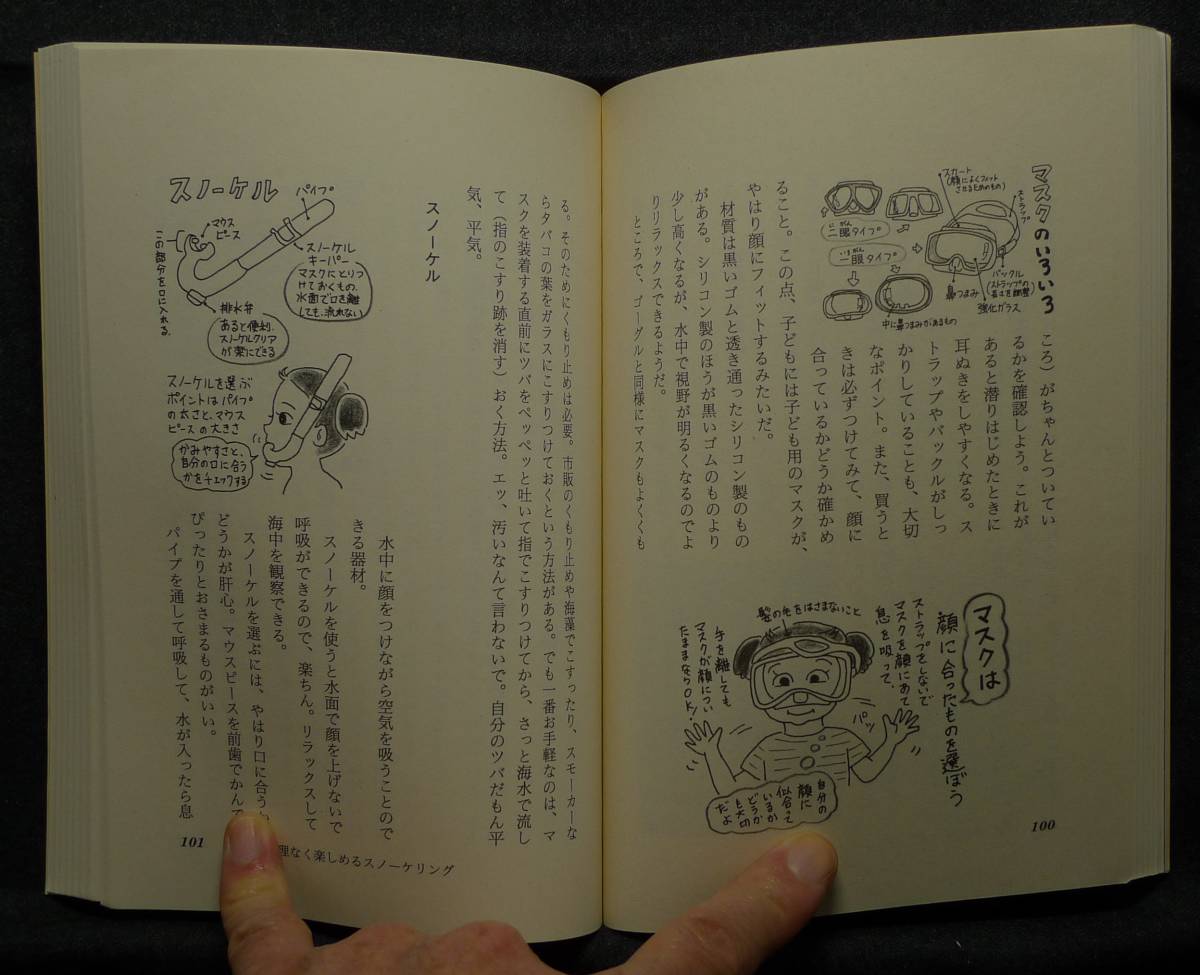 マスクのいろいろ
スカート
(顔によくフィット
させるためのもの)
ストラップ
二眼タイプ
にがん
一眼タイプ
いちがん
バックル
(ストラップの
長さを調整)
鼻つまみ
強化ガラス
中に鼻つまみがあるもの
ころ）がちゃんとついてい
るかを確認しよう。これが
あると潜りはじめたときに
耳ぬきをしやすくなる。ス
トラップやバックルがしっ
かりしていることも、大切
なポイント。また、買うと
きは必ずつけてみて、顔に
合っているかどうか確かめ
ること。この点、子どもには子ども用のマスクが、
やはり顔にフィットするみたいだ。
材質は黒いゴムと透き通ったシリコン製のもの
がある。シリコン製のほうが黒いゴムのものより
少し高くなるが、水中で視野が明るくなるのでよ
りリラックスできるようだ。
ところで、ゴーグルと同様にマスクもよくくも
マスクは
顔に合ったものを選ぼう
ストラップをしないで
マスクを顔にあて
息を吸って、
髪の毛をはさまないこと
手を離しても
マスクが顔につい
たままならOK!
パッ
自分の
顔に
似合って
いるか
どうか
も大切
だよ
100
る。そのためにくもり止めは必要。市販のくもり止めや海藻でこすったり、スモーカーな
らタバコの葉をガラスにこすりつけておくという方法がある。でも一番お手軽なのは、マ
スクを装着する直前にツバをペッペッと吐いて指でこすりつけてから、さっと海水で流し
て（指のこすり跡を消す）おく方法。エッ、汚いなんて言わないで。自分のツバだもん平
気、平気。
スノーケル
スノーケル
パイプ
マウス
ピース
この部分を口に入れる。
スノーケル
キーパー
マスクにとりつ
けておくもの。
水面で口を離
しても、流れない
排水弁
あると便利。
スノーケルクリア
が楽にできる
スノーケルを選ぶ
ポイントはパイプ
の太さと、マウス
ピースの大きさ
かみやすさと、
自分の口に合う
かをチェックする
水中に顔をつけながら空気を吸うことので
きる器材。
スノーケルを使うと水面で顔を上げないで
呼吸ができるので、楽ちん。リラックスして
海中を観察できる。
スノーケルを選ぶには、やはり口に合う
どうかが肝心。マウスピースを前歯でかんで
ぴったりとおさまるものがいい。
パイプを通して呼吸して、水が入ったら息
101
理なく楽しめるスノーケリング